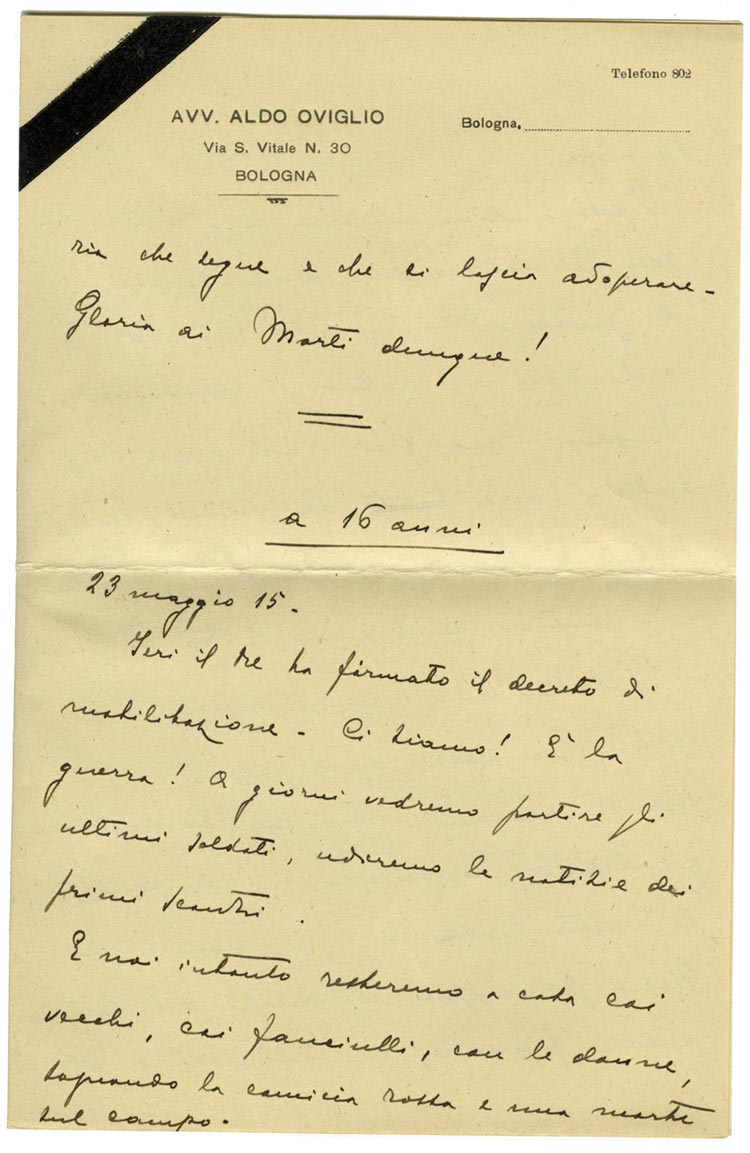 Telefono 802
AVV. ALDO OVIGLIO
Via S. Vitale N. 30
BOLOGNA
Bologna,
ria che segue e che si lascia adoperare -
Gloria ai Morti dunque!
a 16 anni
23 maggio 15 -
Ieri il Re ha firmato il decreto di
mobilitazione - Ci siamo! È la
guerra! A giorni vedremo partire gli
ultimi soldati, udiremo le notizie dei
primi scontri.
E noi intanto resteremo a casa coi
vecchi, coi fanciulli, con le donne,
sognando la camicia rossa e una morte
sul campo.